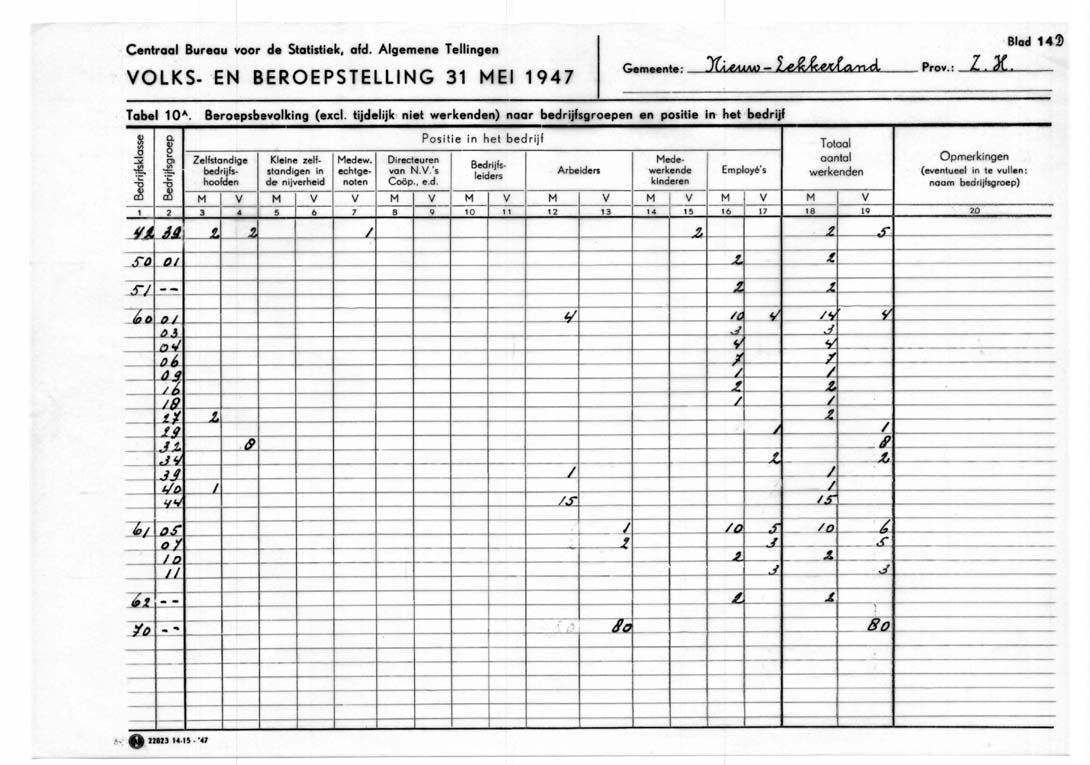 Blad 14D
Centraal Bureau voor de Statistiek, afd. Algemene Tellingen
VOLKS- EN BEROEPSTELLING 31 MEI 1947
Gemeente: Nieuw-Lekkerland Prov.: Z.H.
Tabel 10A. Beroepsbevolking (excl. tijdelijk niet werkenden) naar bedrijfsgroepen en positie in het bedrijf
Bedrijfsklasse Bedrijfsgroep Positie in het bedrijf Totaal aantal werkenden Opmerkingen (eventueel in te vullen: naam bedrijfsgroep)
Zelfstandige bedrijfs-hoofden Kleine zelf-standigen in de nijverheid Medew. echtge-noten Directeuren van N.V.'s Coöp., e.d. Bedrijfs-leiders Arbeiders Mede-werkende kinderen Employé's
M V M V V M V M V M V M V M V M V
1 2 3 4 5 6 7 8 9 10 11 12 13 14 15 16 17 18 19 20
42 39 2 2 1 2 2 5
50 01 2 2
51 -- 2 2
60 01 4 10 4 14 4
03 3 3
04 4 4
06 7 7
09 1 1
16 2 2
18 1 1
27 2 2
29 1 1
32 8 8
34 2 2
39 1 1
40 1 1
44 15 15
61 05 1 10 5 10 6
07 2 3 5
10 2 2
11 3 3
62 -- 2 2
70 -- 80 80
22823 14-15 - '47